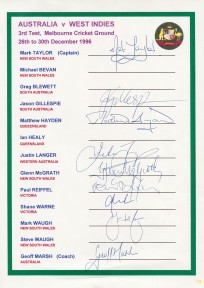 AUSTRALIA v WEST INDIES
3rd Test, Melbourne Cricket Ground
26th to 30th December 1996
Mark TAYLOR (Captain)
NEW SOUTH WALES
Michael BEVAN
NEW SOUTH WALES
Greg BLEWETT
SOUTH AUSTRALIA
Jason GILLESPIE
SOUTH AUSTRALIA
Matthew HAYDEN
QUEENSLAND
Ian HEALY
QUEENSLAND
Justin LANGER
WESTERN AUSTRALIA
Glenn McGRATH
NEW SOUTH WALES
Paul REIFFEL
VICTORIA
Shane WARNE
VICTORIA
Mark WAUGH
NEW SOUTH WALES
Steve WAUGH
NEW SOUTH WALES
Geoff MARSH (Coach)
AUSTRALIA
Geoff Marsh